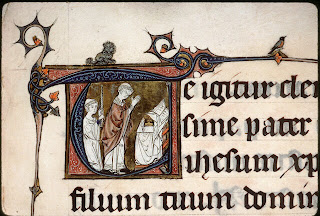 Te igitur cle
sime pater
ihesum xp
filium tuum domin